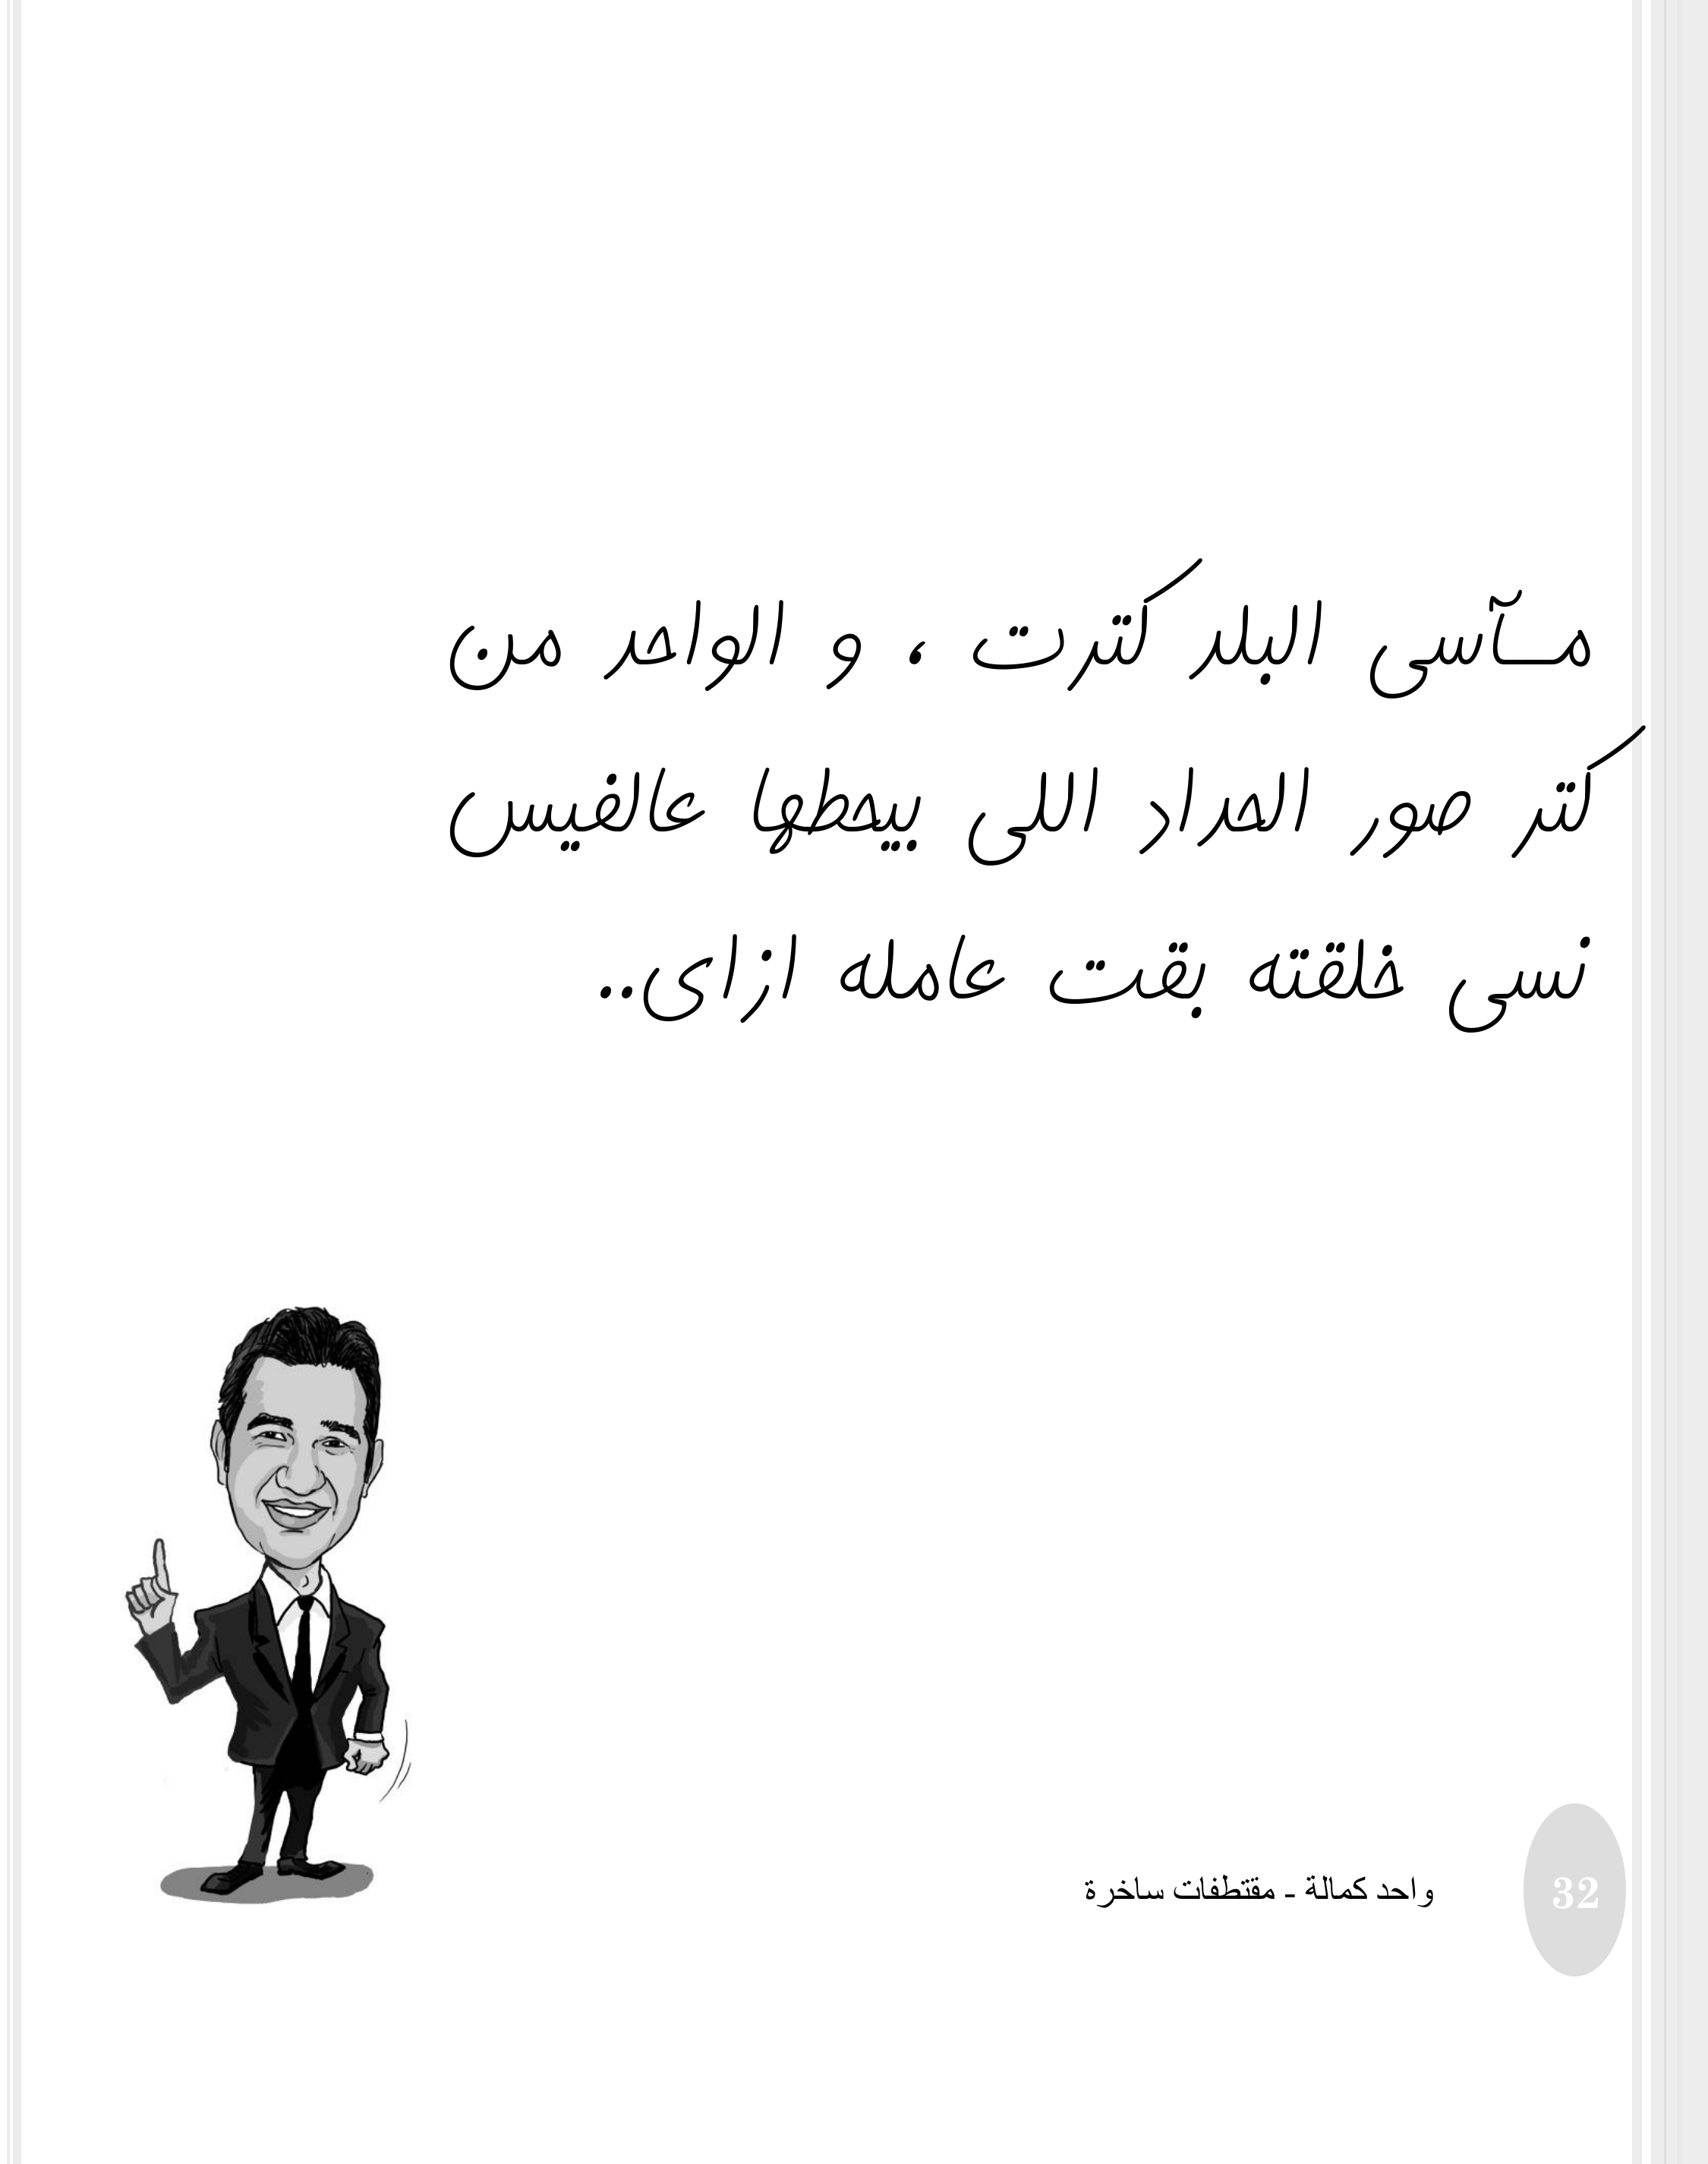 مــآسى البلد كترت ، و الواحد من
كتر صور الحداد اللى بيحطها عالفيس
نسى خلقته بقت عامله ازاى..
واحد كمالة - مقتطفات ساخرة
32